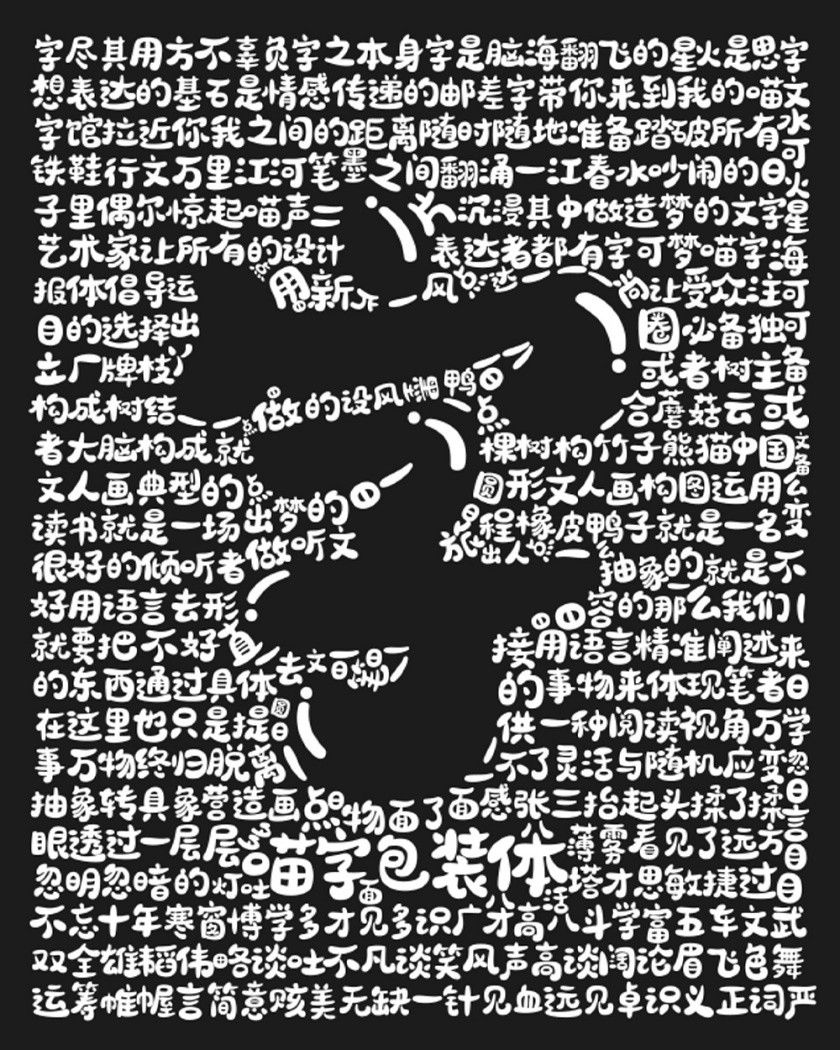 字尽其用方不辜负字之本身字是脑海翻飞的星火是思字
想表达的基石是情感传递的邮差字带你来到我的喵文
字馆拉近你我之间的距离随时随地准备踏破所有水
铁鞋行文万里江河笔墨之间翻涌一江春水吵闹的日火
子里偶尔惊起喵声二 片沉浸其中做造梦的文字星
艺术家让所有的设计 表达者都有字可梦喵字海
报体倡导运 点用新 一风点 达一 尚让受众注可
目的选择出 圈必备独可
立厂牌枝 或者树主备
构成树结一 点做的设风 鸭日点 合蘑菇云或
者大脑构成就 棵树构竹子熊猫中国
文人画典型的点 圆形文人画构图运用么
读书就是一场出梦的日 程橡皮鸭子就是一名变
很好的倾听者做听文 旅出人 一 抽象的就是不
好用语言去形 容的那么我们
就要把不好直 接用语言精准阐述来
的东西通过具体去文百 的事物来体现笔者日
在这里也只是提圆日 供一种阅读视角万学
事万物终归脱离 不了灵活与随机应变忽
抽象转具象营造画点物面了面感张三抬起头揉了揉日
眼透过一层层 八薄雾看见了远方言
喵字包装体
忽明忽暗的灯吐面活塔才思敏捷过目
不忘十年寒窗博学多才见多识广才高八斗学富五车文武
双全雄韬伟略谈吐不凡谈笑风声高谈阔论眉飞色舞
运筹帷幄言简意赅美无缺一针见血远见卓识义正词严